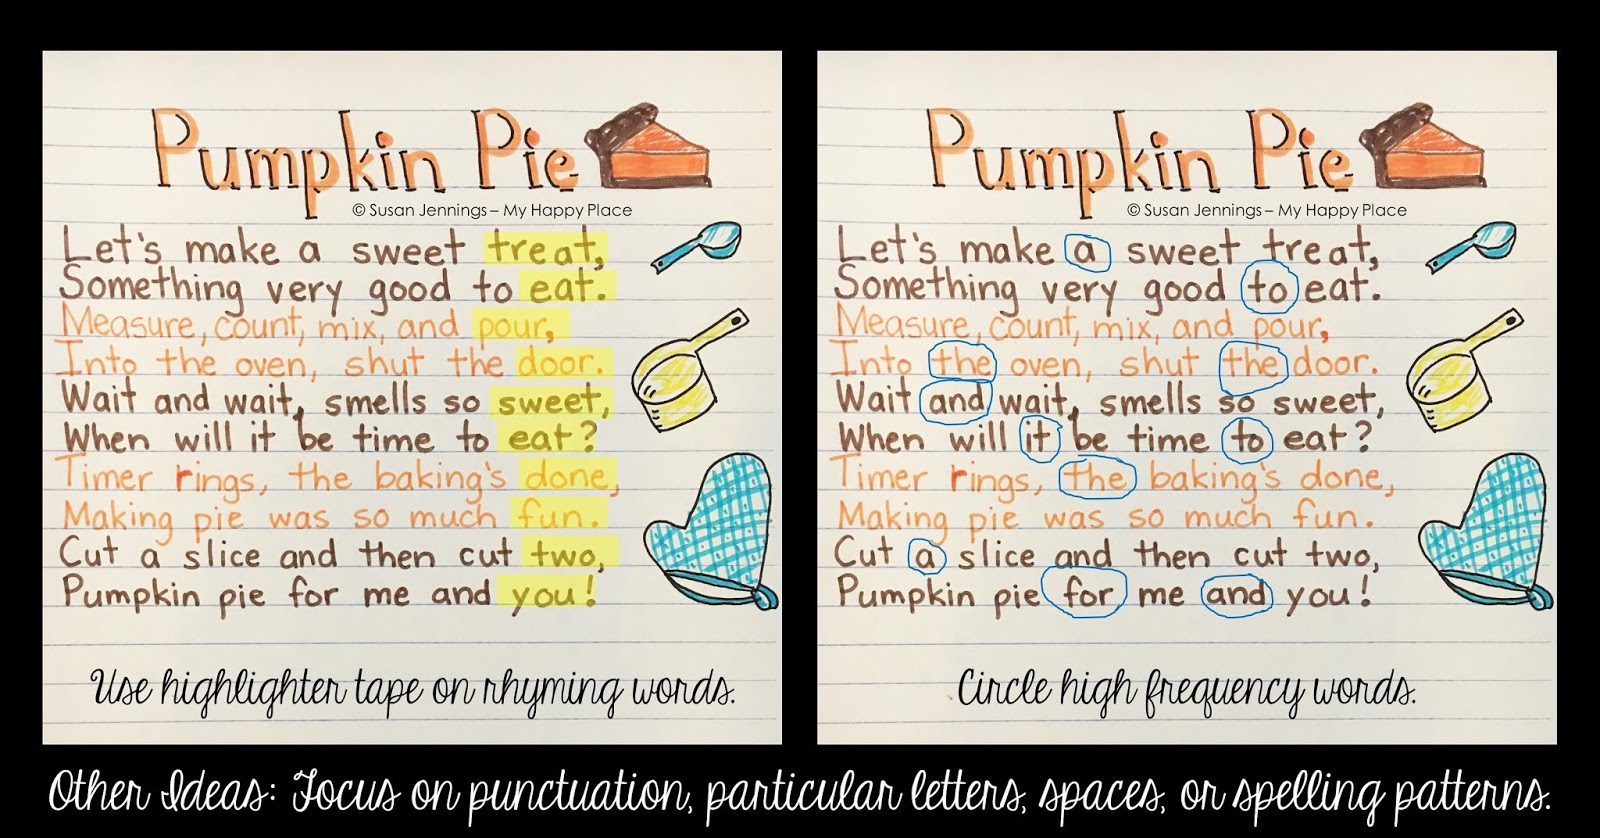 Pumpkin Pie
© Susan Jennings – My Happy Place
Let's make a sweet treat,
Something very good to eat.
Measure, count, mix, and pour,
Into the oven, shut the door.
Wait and wait, smells so sweet,
When will it be time to eat?
Timer rings, the baking's done,
Making pie was so much fun.
Cut a slice and then cut two,
Pumpkin pie for me and you!
Use highlighter tape on rhyming words.
Pumpkin Pie
© Susan Jennings – My Happy Place
Let's make a sweet treat,
Something very good to eat.
Measure, count, mix, and pour,
Into the oven, shut the door.
Wait and wait, smells so sweet,
When will it be time to eat?
Timer rings, the baking's done,
Making pie was so much fun.
Cut a slice and then cut two,
Pumpkin pie for me and you!
Circle high frequency words.
Other Ideas: Focus on punctuation, particular letters, spaces, or spelling patterns.